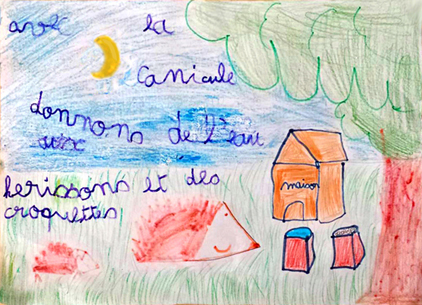 avec la
canicule
donnons de l'eau
aux
herissons et des
croquettes
maison